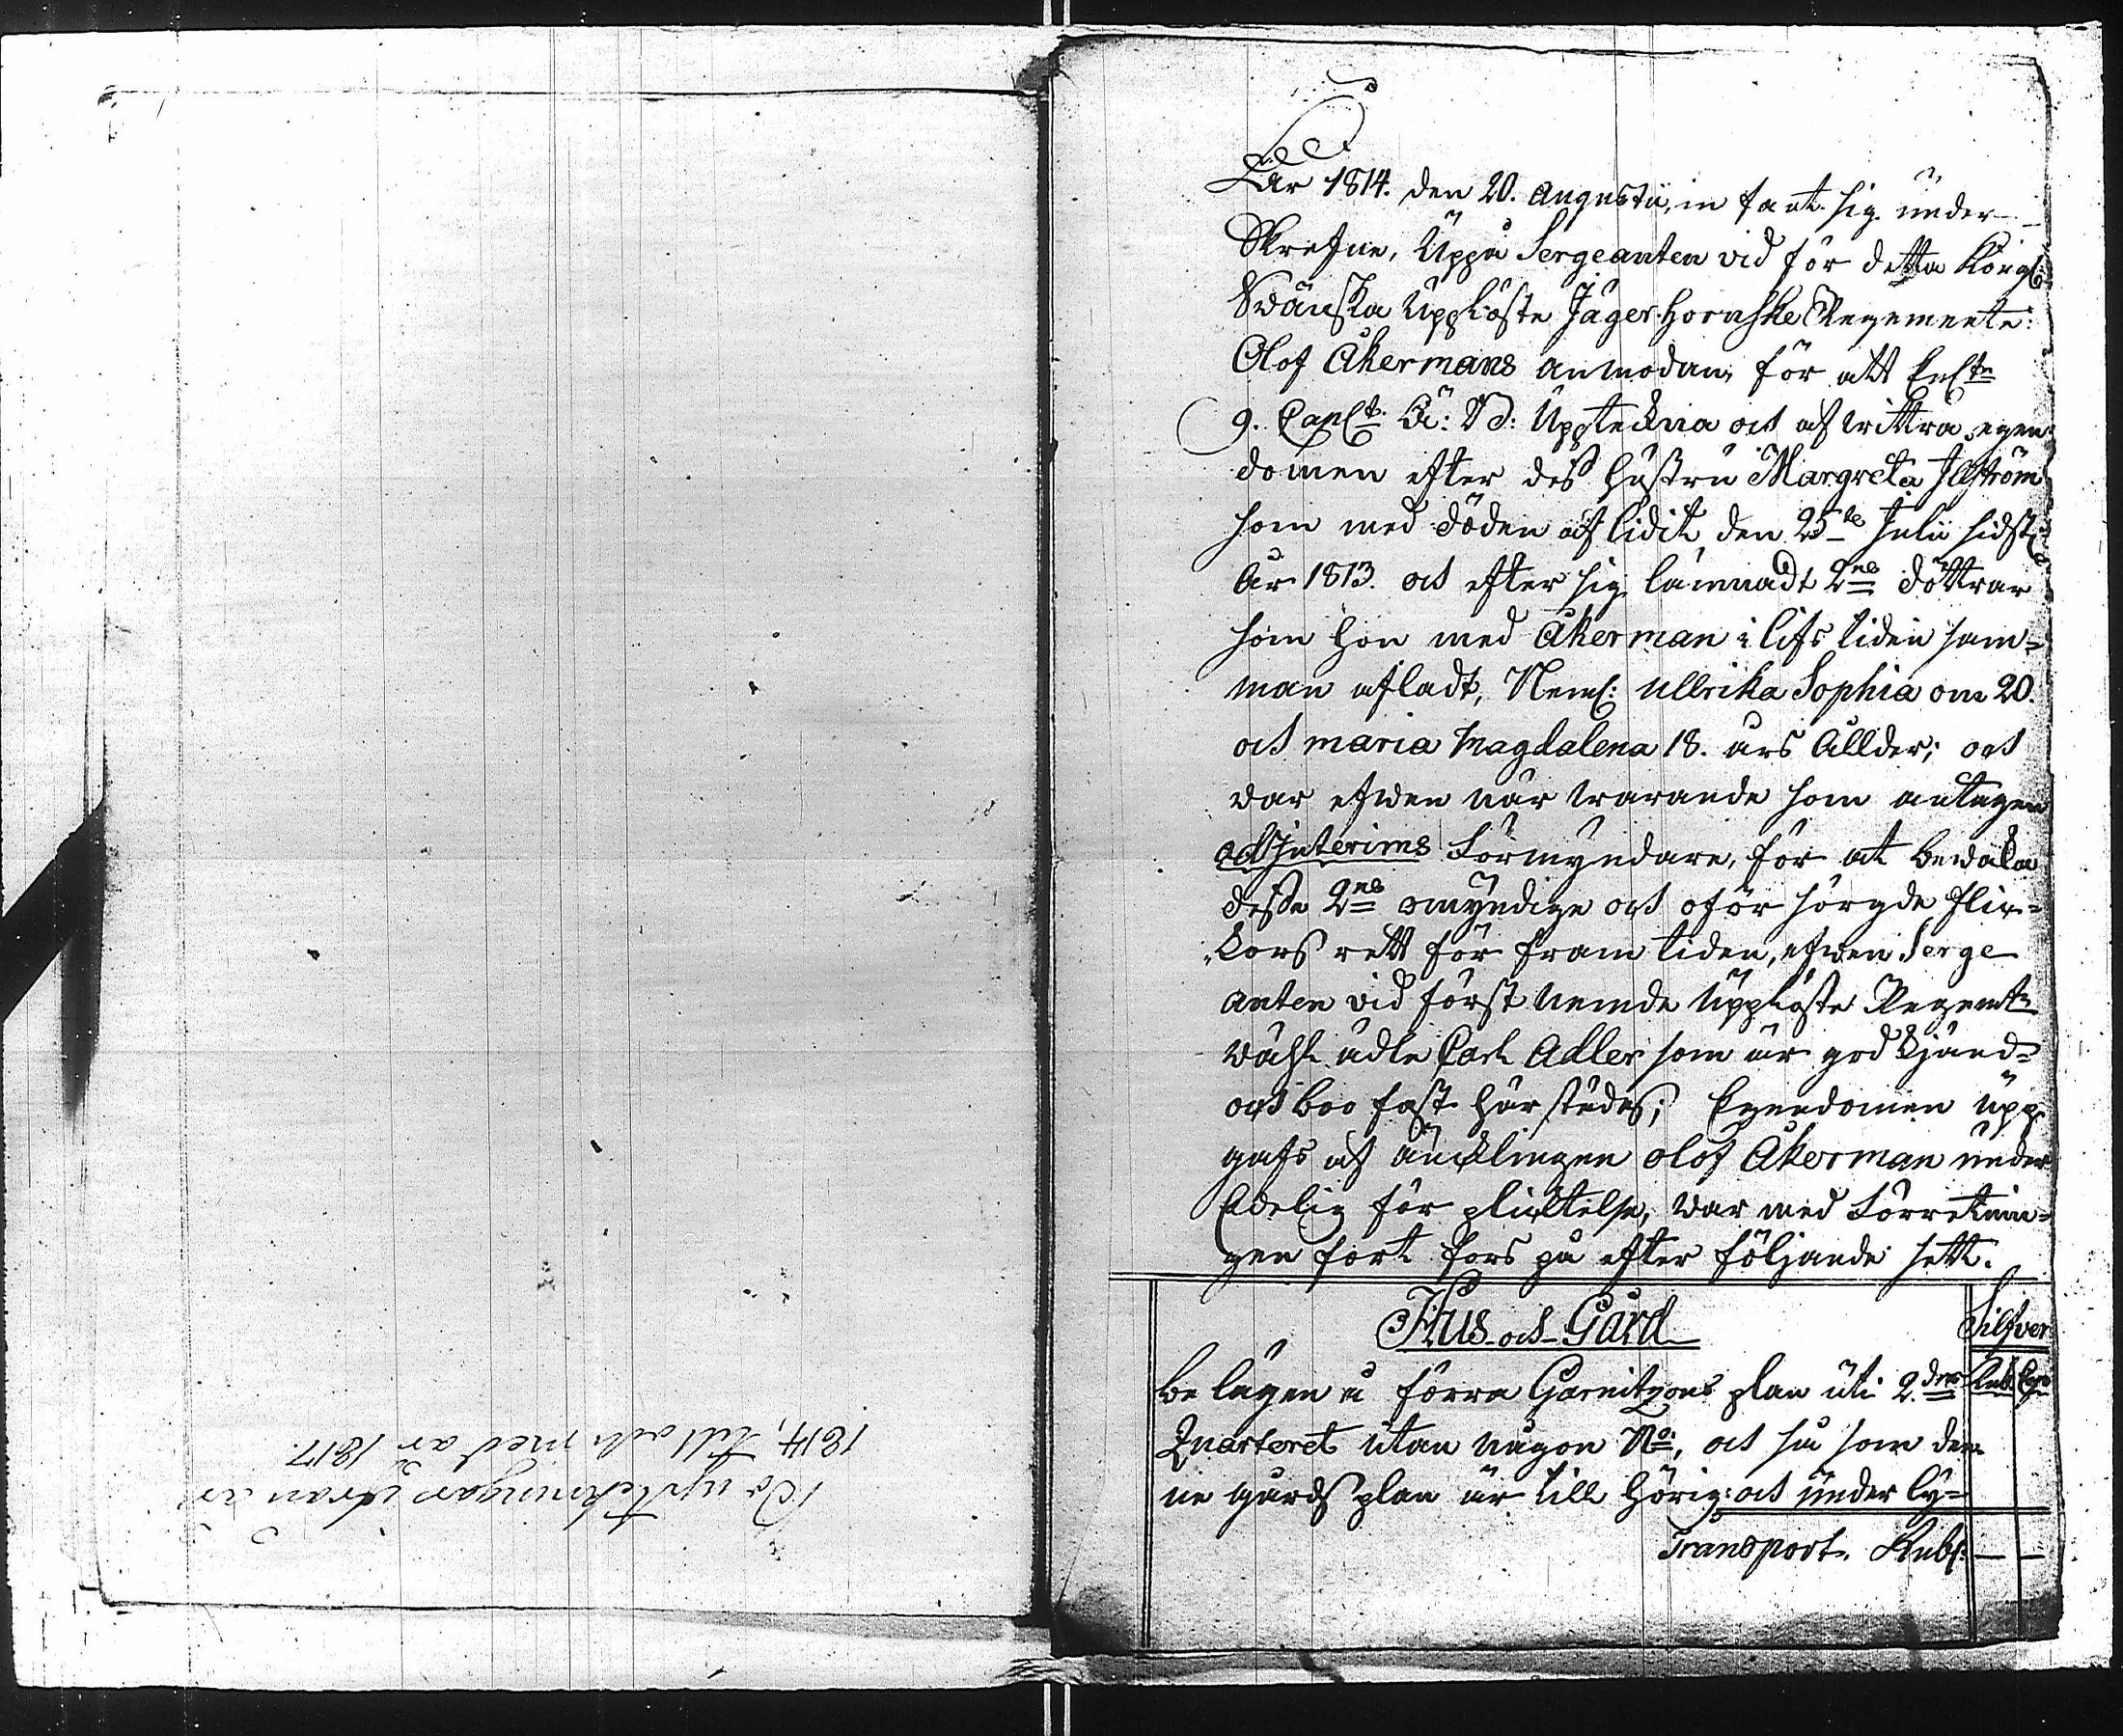 Bo upteckningar ifrån år
1814, till och med år 1817.
År 1814. den 20. Augustii, in fant sig under-
Skrefne, Uppå Sergeanten vid för detta Kongl:
Swänska Upplöste Jäger-hornske Regemente:
Olof Åkermans anmodan, för att
9. Cap: Ä: B: Upptekna och af wittra egen
domen efter des hustru Margreta
som med döden aflidit den 25te Julii sidst:
År 1813. och efter sig lämnadt 2ne döttrar
som hon med Åkerman i lifs tiden sam-
man afladt, Neml: Ullrika Sophia om 20.
och maria Magdalena 18. års Ållder; och
war efwen när warande som antagen
ad Interims Förmyndare, för at bewaka
desse 2ne omyndige och oför sörgde flic-
kors rett för fram tiden, efwen Serge
anten vid först nemde Upplöste Regemte
wähl ädle Carl Adler som är god kjänd-
och boo fast här städes; Egendomen Upp
gafs af äncklingen Olof Åkerman under
Edelig för plicktelse, war med Förretnin-
gen fort fors på efter följande sett.
Hus och Gård
Silfver
be lägen i förra Garnitzons plan uti 2.dra Rub: Cop:
Quarteret utan någon No:, och så som den
ne gårds plan är till hörig: och under ly-
Transport. Rub: — —